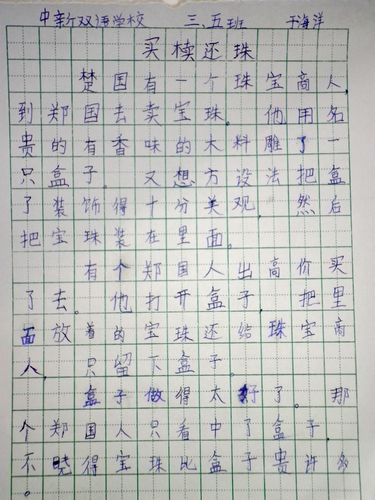 中新双语学校 三、五班 于海洋
买椟还珠
楚国有一个珠宝商人,
到郑国去卖宝珠。他用名
贵的有香味的木料雕了一
只盒子。又想方设法把盒
了装饰得十分美观,然后
把宝珠装在里面。
有个郑国人出高价买
了去。他打开盒子,把里
面放着的宝珠还给珠宝商
人,只留下盒子。
盒子做得太好了。那
个郑国人只看中了盒子,
不晓得宝珠比盒子贵许多
。